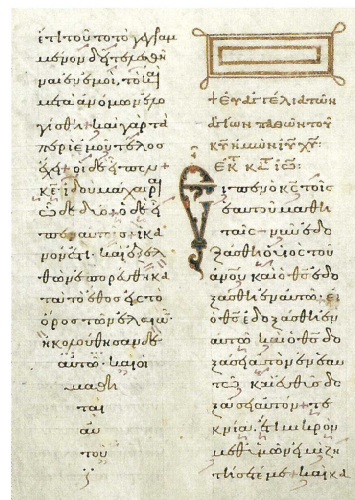 ἔτι τοῦτο τὸ γεγραμ
μένον δεῖ τελεσθῆ
ναι ἐν ἐμοί, τὸ καὶ
μετὰ ἀνόμων ἐλο
γίσθη + καὶ γὰρ τὰ
περὶ ἐμοῦ τέλος
ἔχει + οἱ δὲ εἶπον +
κε ἰδοὺ μάχαιραι
ὧδε δύο + ὁ δὲ εἶ
πεν αὐτοῖς + ἱκα
νόν ἐστι + καὶ ἐξελ
θὼν ἐπορεύθη κα
τὰ τὸ ἔθος εἰς τὸ
ὄρος τῶν ἐλαιῶν
ἠκολούθησαν δὲ
αὐτῷ καὶ οἱ
μαθη
ταὶ
αὐ
τοῦ
+ εὐαγγέλια τῶν
ἁγίων παθῶν τοῦ
κυ ἡμῶν ιυ χυ:
ἐκ κτ ἰω:
Εἶπεν ὁ κς τοῖς
ἑαυτοῦ μαθη
ταῖς + νῦν ἐδο
ξάσθη ὁ υἱὸς τοῦ
ἀνου καὶ ὁ θς ἐδο
ξάσθη ἐν αὐτῷ. εἰ
ὁ θς ἐδοξάσθη ἐν
αὐτῷ καὶ ὁ θς δο
ξάσει αὐτὸν ἐν ἑαυ
τῷ καὶ εὐθὺς δο
ξάσει αὐτόν + τε
κνία. ἔτι μικρὸν
μεθ ὑμῶν εἰμι ζη
τήσετέ με + καὶ κα